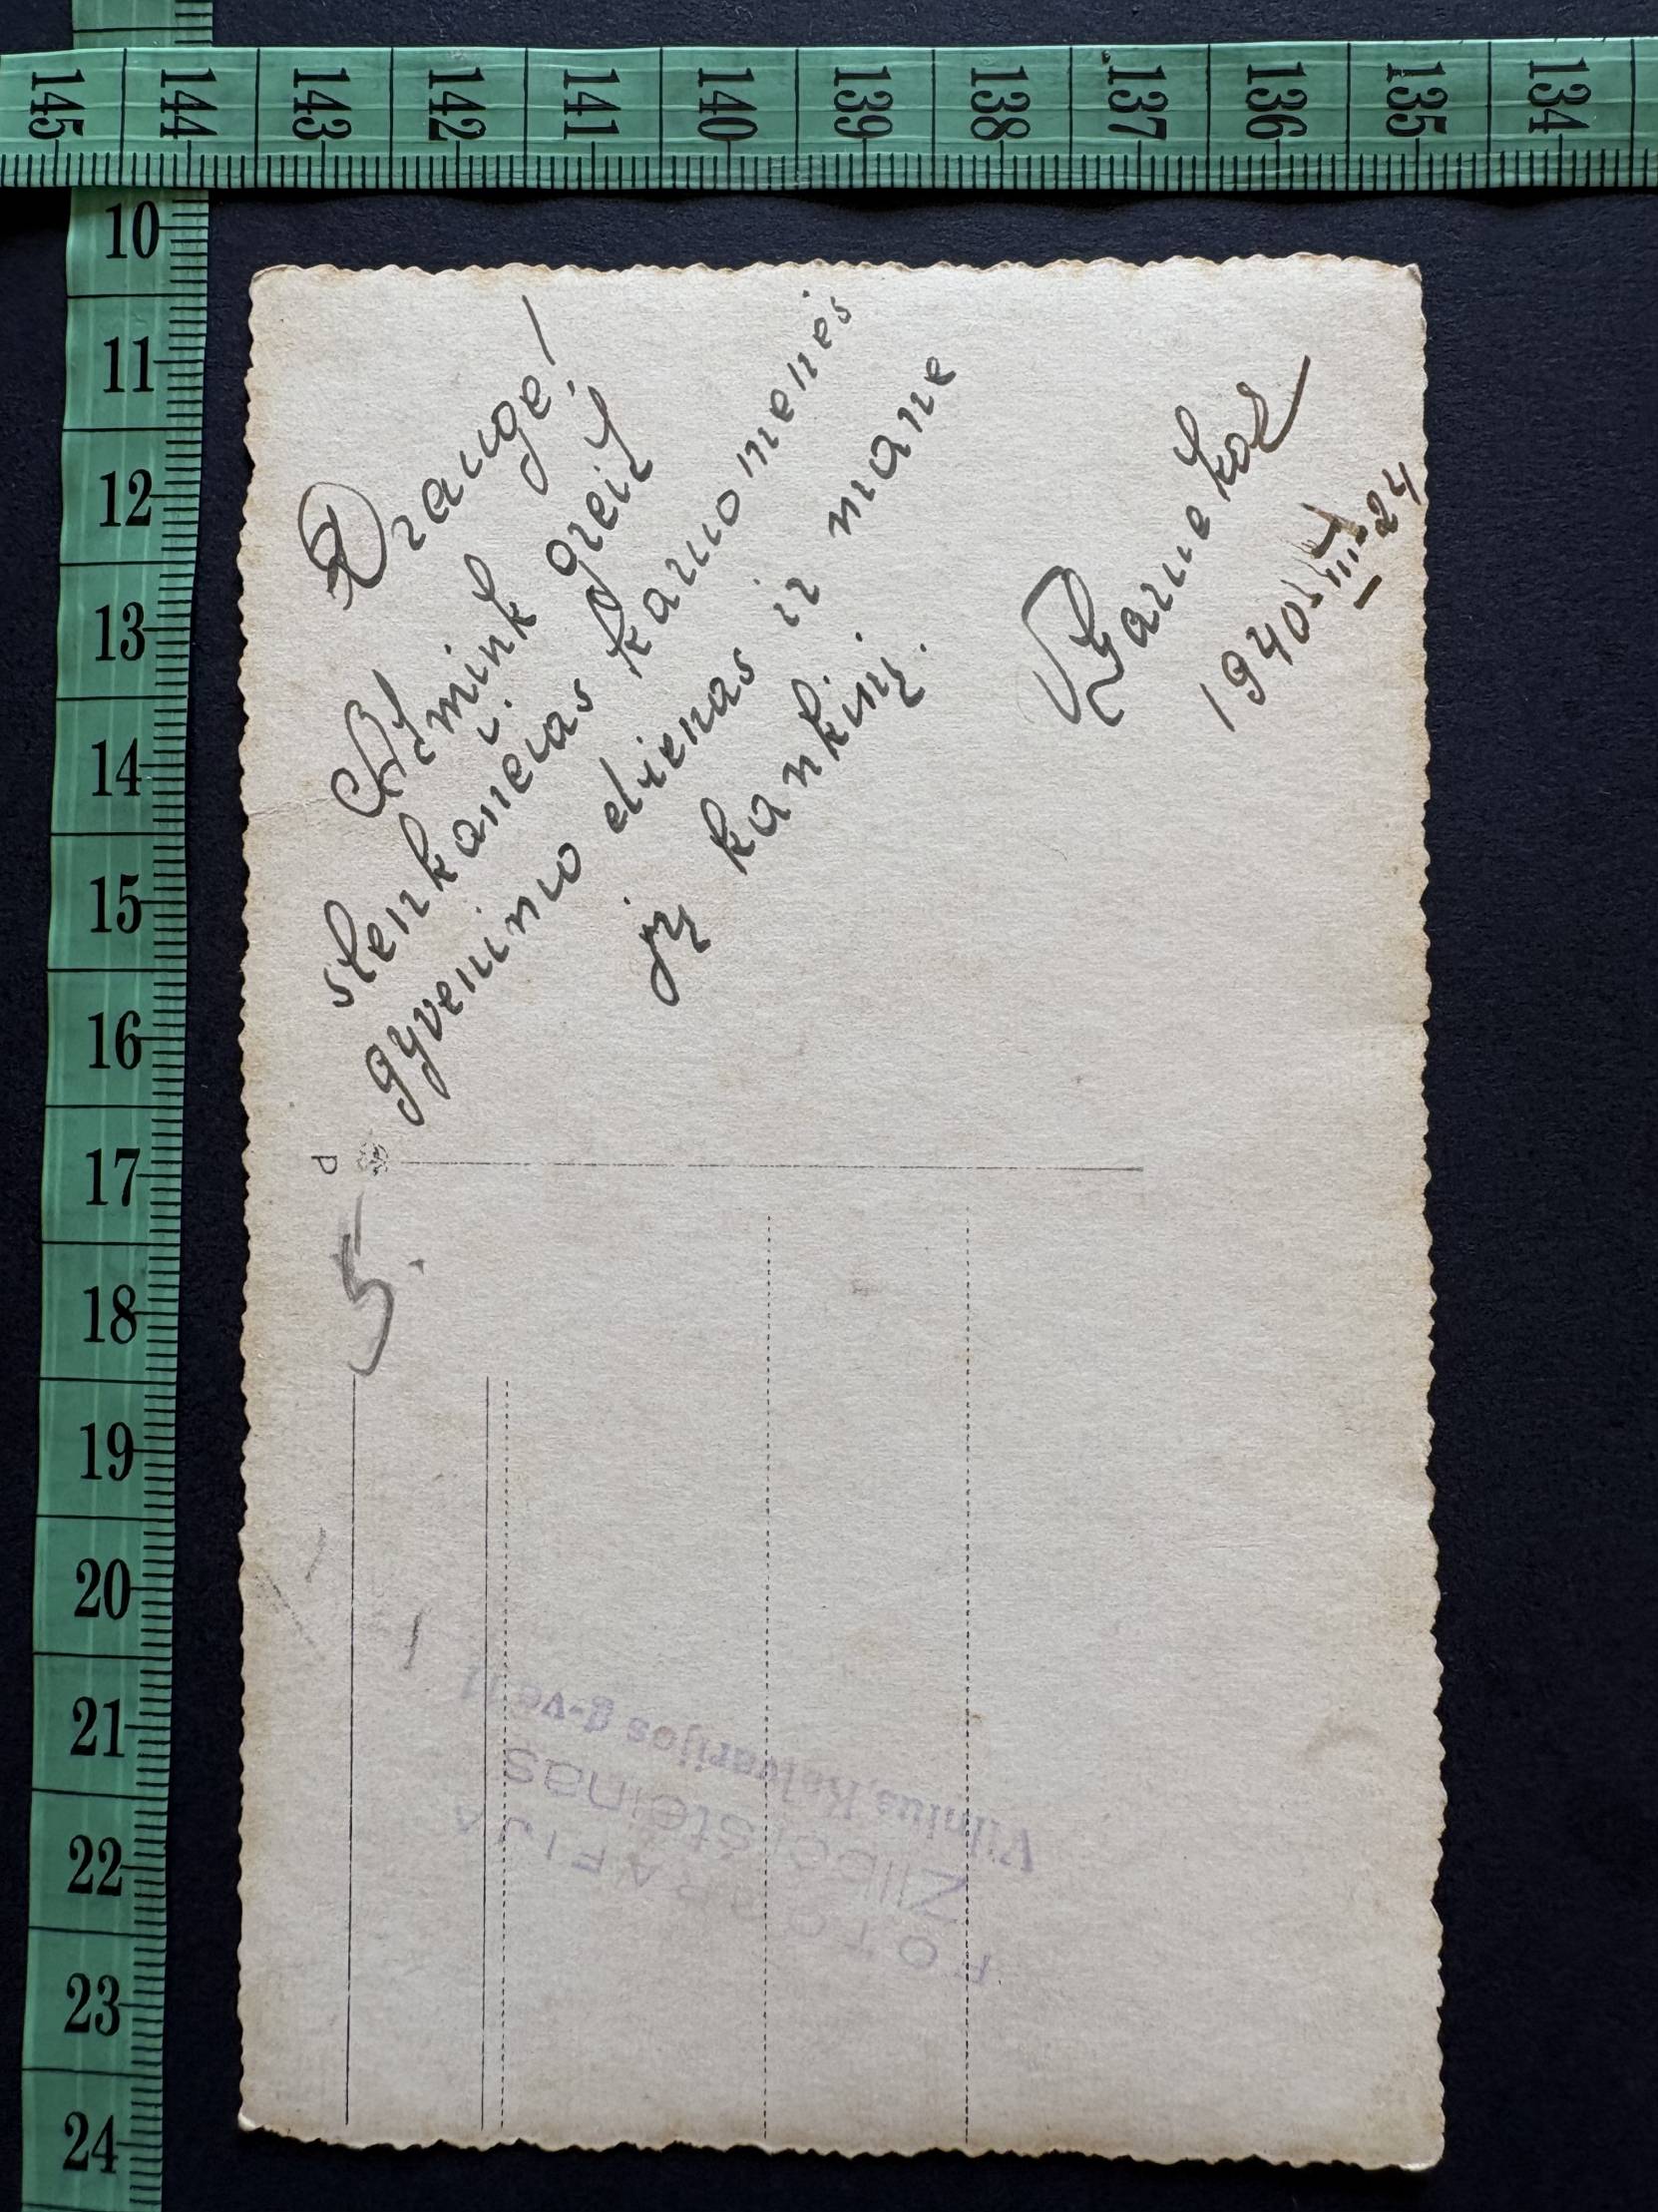 Drauge!
Atmink greit
slenkančias kariuomenės
gyvenimo dienas ir mane
jų kankinį.
1940 III-24
5.
FOTOGRAFIJA
Zilberšteinas
Vilnius, Kalvarijos g-vė 11
145 144 143 142 141 140 139 138 137 136 135 134
10
11
12
13
14
15
16
17
18
19
20
21
22
23
24